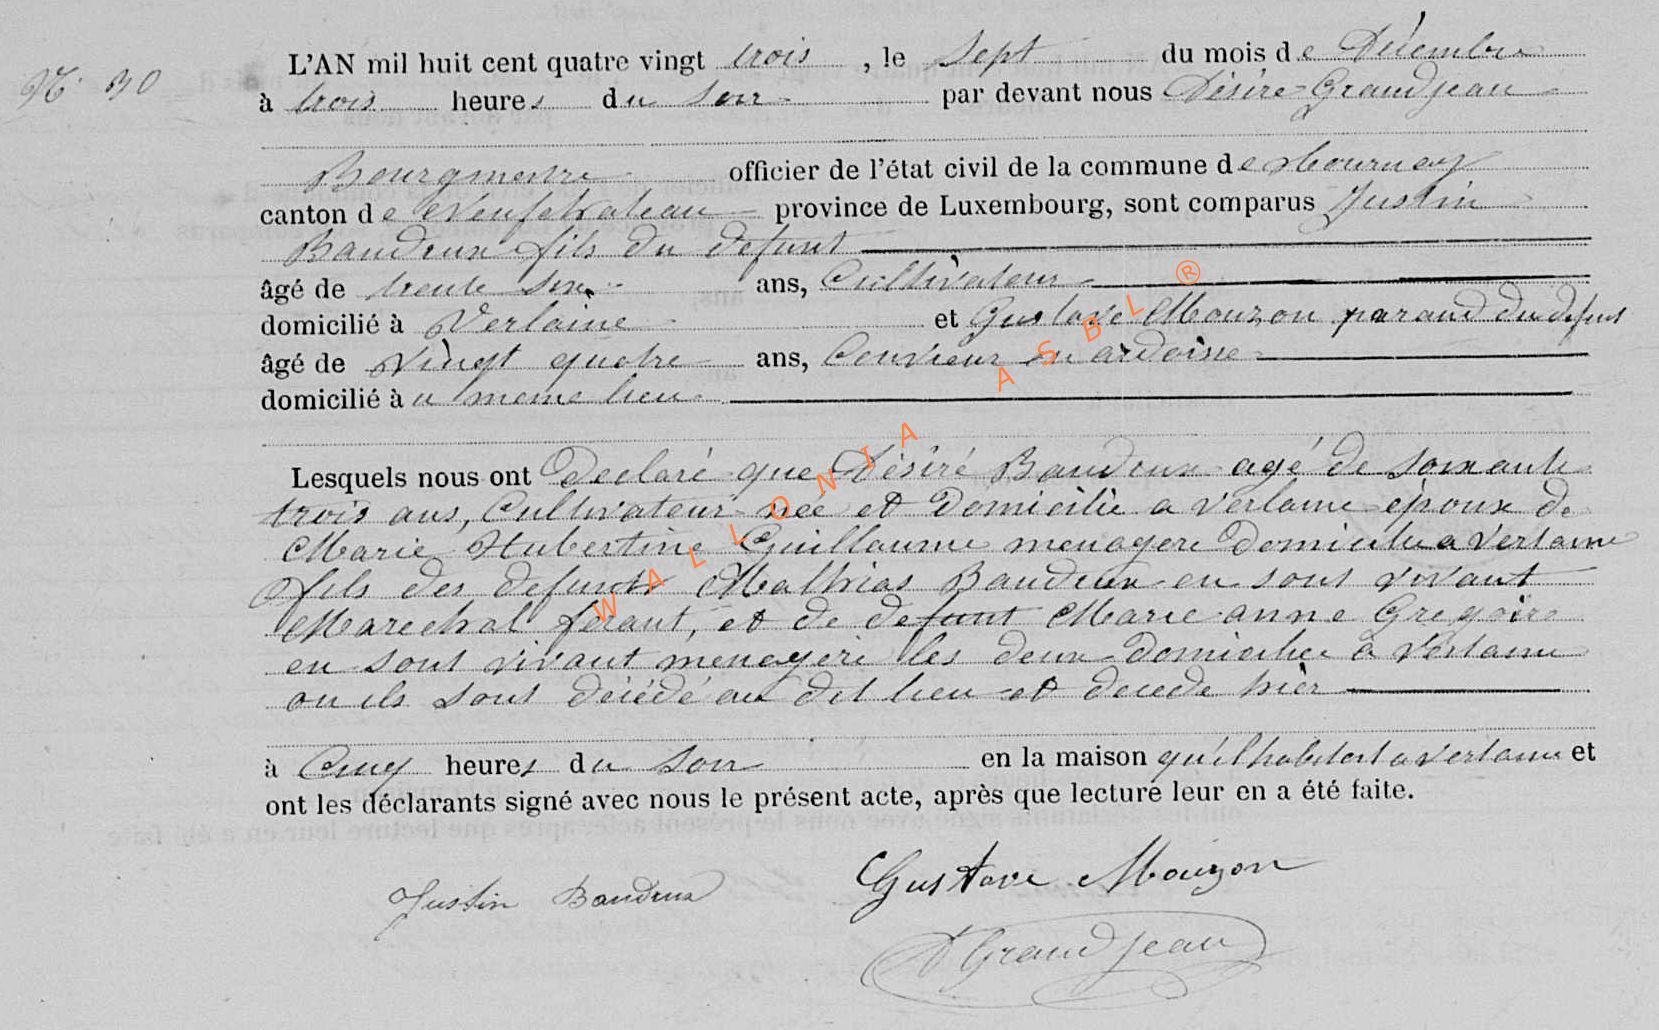 N° 30
L'AN mil huit cent quatre vingt trois, le Sept du mois de Décembre
à trois heures du Soir par devant nous Désiré Grandjean
Bourgmestre officier de l'état civil de la commune de Tournay
canton de Neufchateau province de Luxembourg, sont comparus Justin
Baudrux fils du defunt
âgé de trente six ans, Cultivateur
domicilié à Verlaine et Gustave Mouzon parand du defunt
âgé de Vingt quatre ans, Couvreur en ardoise
domicilié à u meme lieu
Lesquels nous ont Declaré que Désiré Baudrux agé de soixante
trois ans, Cultivateur née et Domicilié a Verlaine époux de
Marie Hubertine Guillaume menagere Domiciliée a Verlaine
fils des defunts Mathias Baudrux en sont vivant
Marechal ferant, et de defunt Marie anne Gregoire
en sont vivant menagere les deux Domicilier à Verlaine
ou ils sont décédé au dit lieu et decede hier
à Cinq heures du Soir en la maison qu'il habitait a Verlaine et
ont les déclarants signé avec nous le présent acte, après que lecture leur en a été faite.
Justin Baudrux Gustave Mouzon
D Grandjean
WALLONIA ASBL ®